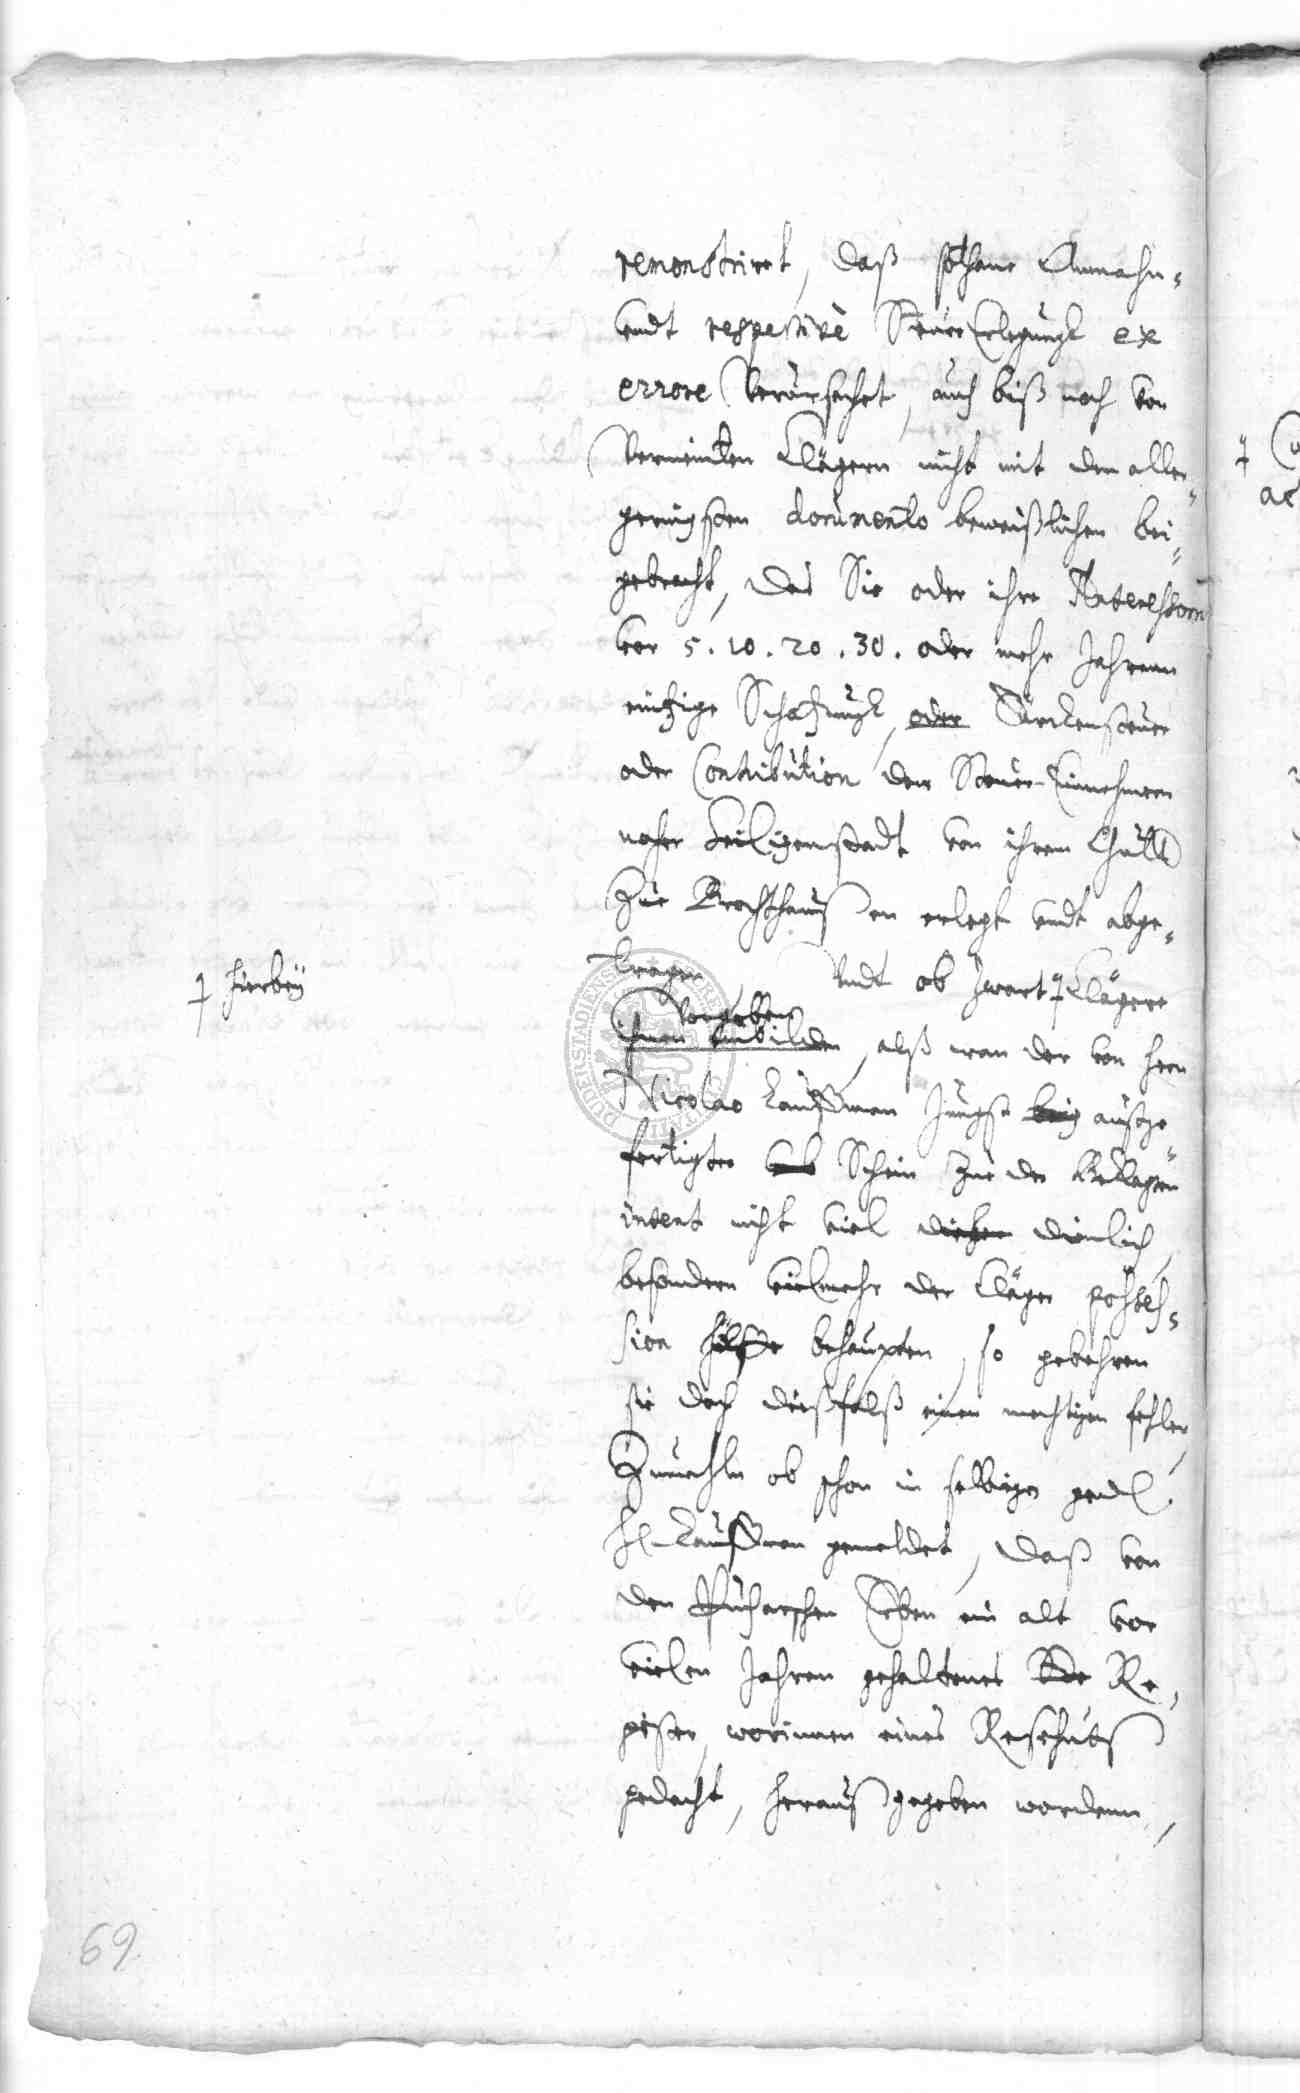 remonstriret, daß sothane Anmahn-
undt respectivè Steur Erlegungk ex
errore verursachet, auch biß noch von
vermeinten Clägern nicht mit den aller-
geringsten documento beweißlichen bei-
gebracht, das Sie oder ihre Antecessorn
vor 5. 10. 20. 30. oder mehr Jahrenn
eintzige Schatzungk, oder Türckensteuer
oder Contribution den Steuer-Einnehmern
naher Heiligenstadt von ihrem Guett
Zue Brochthausen erlegt undt abge-
tragen Undt ob zwart † Clägere
† hierbey
vorgeben
ihnen einbilden, alß wan der von Hern
Nicolao Kauffman Jüngst beig außge-
fertigter Schein zue der Beklagten
intent nicht viel dienlich,
besondern vielmehr der Cläger posses-
sion hülffe behaupten, so gebehren
sie doch dießfalß einen mechtigen fehler,
Zumahln ob schon in selbigen gedl.
Hl. Kauffman gemeldet, daß von
den Erben ein alt vor
vielen Jahren gehaltenes Re-
gister, worinnen eines Reschubs
gedacht, herauß gegeben wordenn,
69